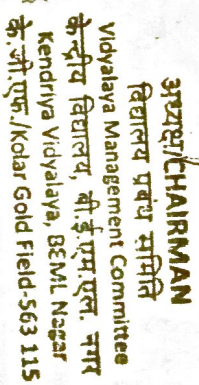 अध्यक्ष/CHAIRMAN
विद्यालय प्रबंध समिति
Vidyalaya Management Committee
केन्द्रीय विद्यालय, बी.ई.एम.एल. नगर
Kendriya Vidyalaya, BEML Nagar
के.जी.एफ./Kolar Gold Field-563 115